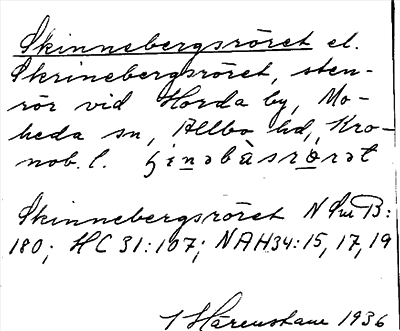 Skinnebergsröret el.
Skrinebergsröret, sten-
rör vid Horda by, Mo-
heda sn, Allbo hd, Kro-
nob. l.
Skinnebergsröret N Sm B:
180; HC 31:107; NAH 34:15, 17, 19
1936